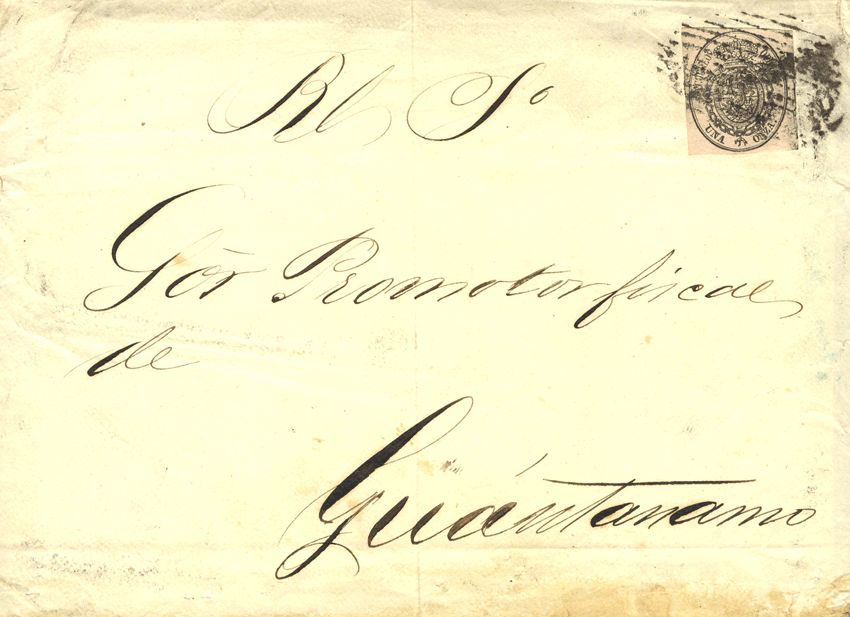 Rl So
Sōr Promotor fiscal
de
Guántanamo
UNA ONZA